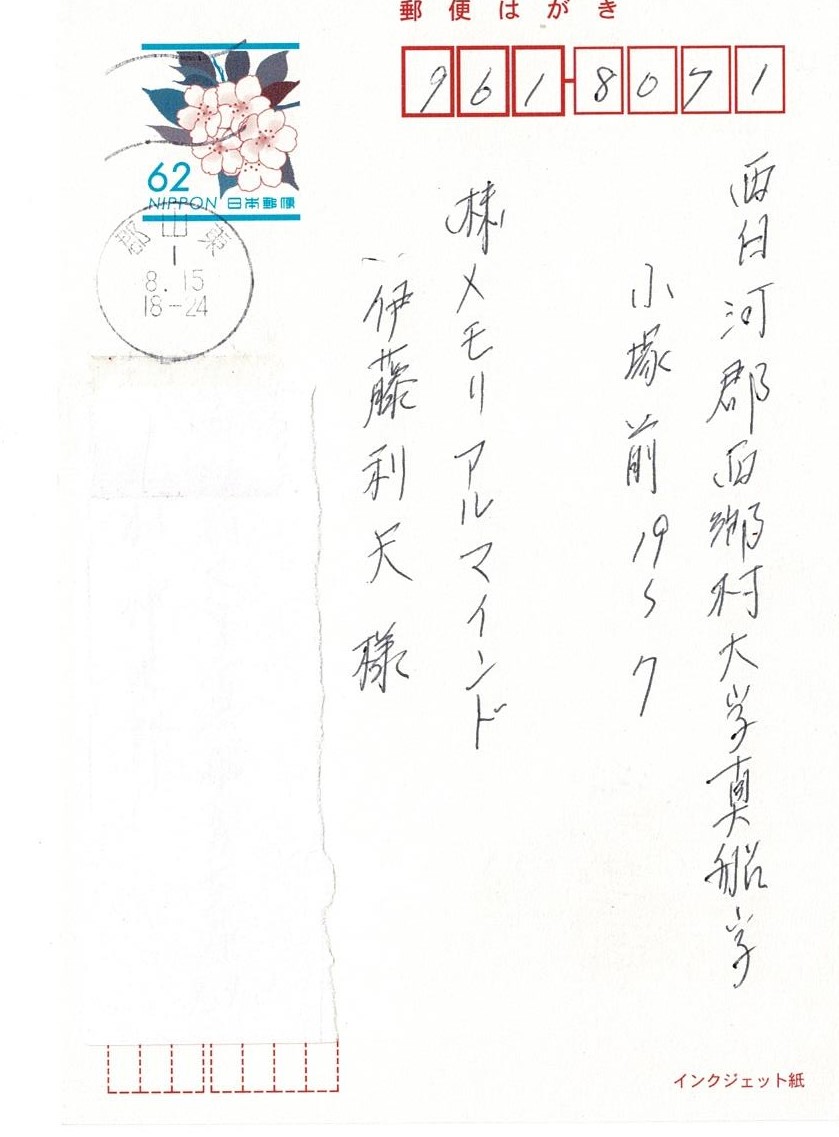 郵便はがき
961-8071
62
NIPPON 日本郵便
郡山東
1
8.15
18-24
西白河郡西郷村大字真船字
小塚前19〜7
㈱メモリアルマインド
伊藤利
様
インクジェット紙